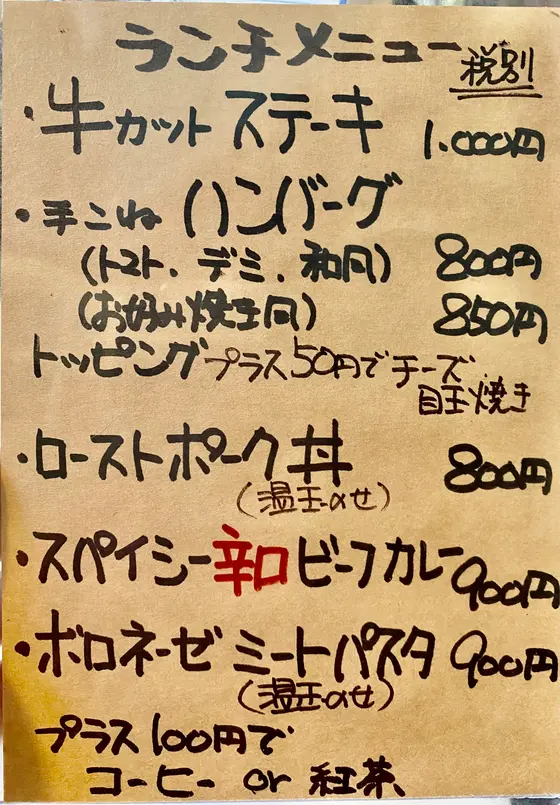 ランチメニュー 税別
・牛カットステーキ 1.000円
・手こねハンバーグ
(トマト.デミ.和风) 800円
(お好み焼き风) 850円
トッピングプラス50円でチーズ
目玉焼き
・ローストポーク丼 800円
(温玉のせ)
・スパイシー辛口ビーフカレー 900円
・ボロネーゼミートパスタ 900円
(温玉のせ)
プラス100円で
コーヒー or 紅茶